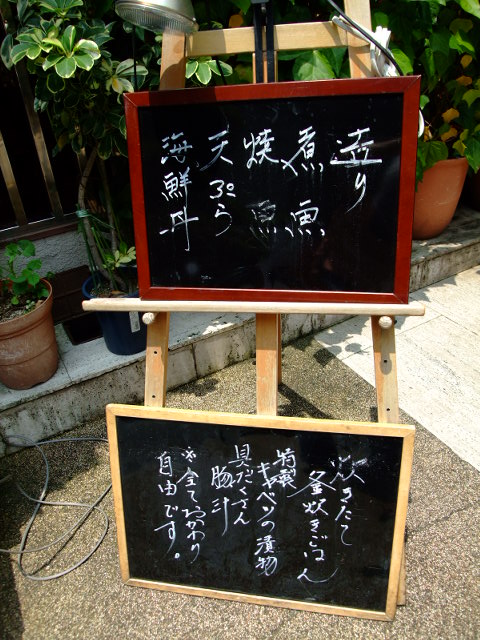 造り
煮魚
焼魚
天ぷら
海鮮丼
炊きたて
釜炊きごはん
特製
キャベツの漬物
具だくさん
豚汁
※全ておかわり
自由です。